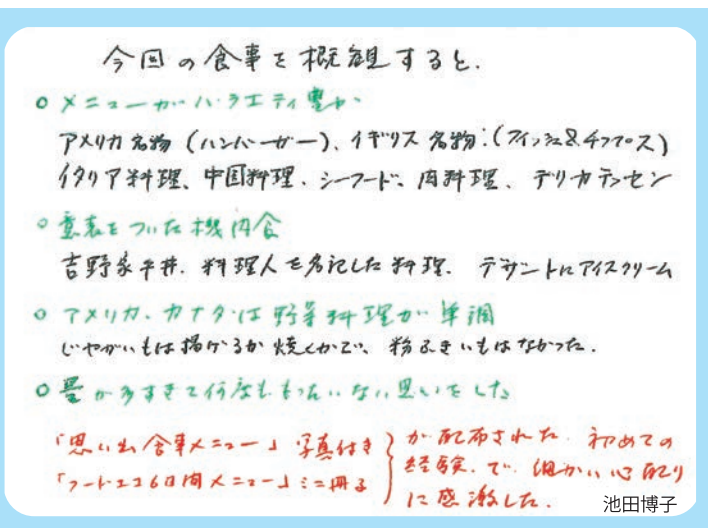 今回の食事を概観すると.
○メニューがバラエティ豊か
アメリカ名物（ハンバーガー）、イギリス名物：（フィッシュ&チップス）
イタリア料理、中国料理、シーフード、肉料理、デリカテッセン
○意表をついた機内食
吉野家牛丼、料理人を名記した料理、デザートにアイスクリーム
○アメリカ、カナダは野菜料理が単調
じゃがいもは揚げるか焼くかで、粉ふきいもはなかった.
○量が多すぎて何度ももったいない思いをした
「思い出食事メニュー」写真付き
「フードエコ6日間メニュー」ミニ冊子
が配布された. 初めての
経験で、細かい心配り
に感激した.
池田博子